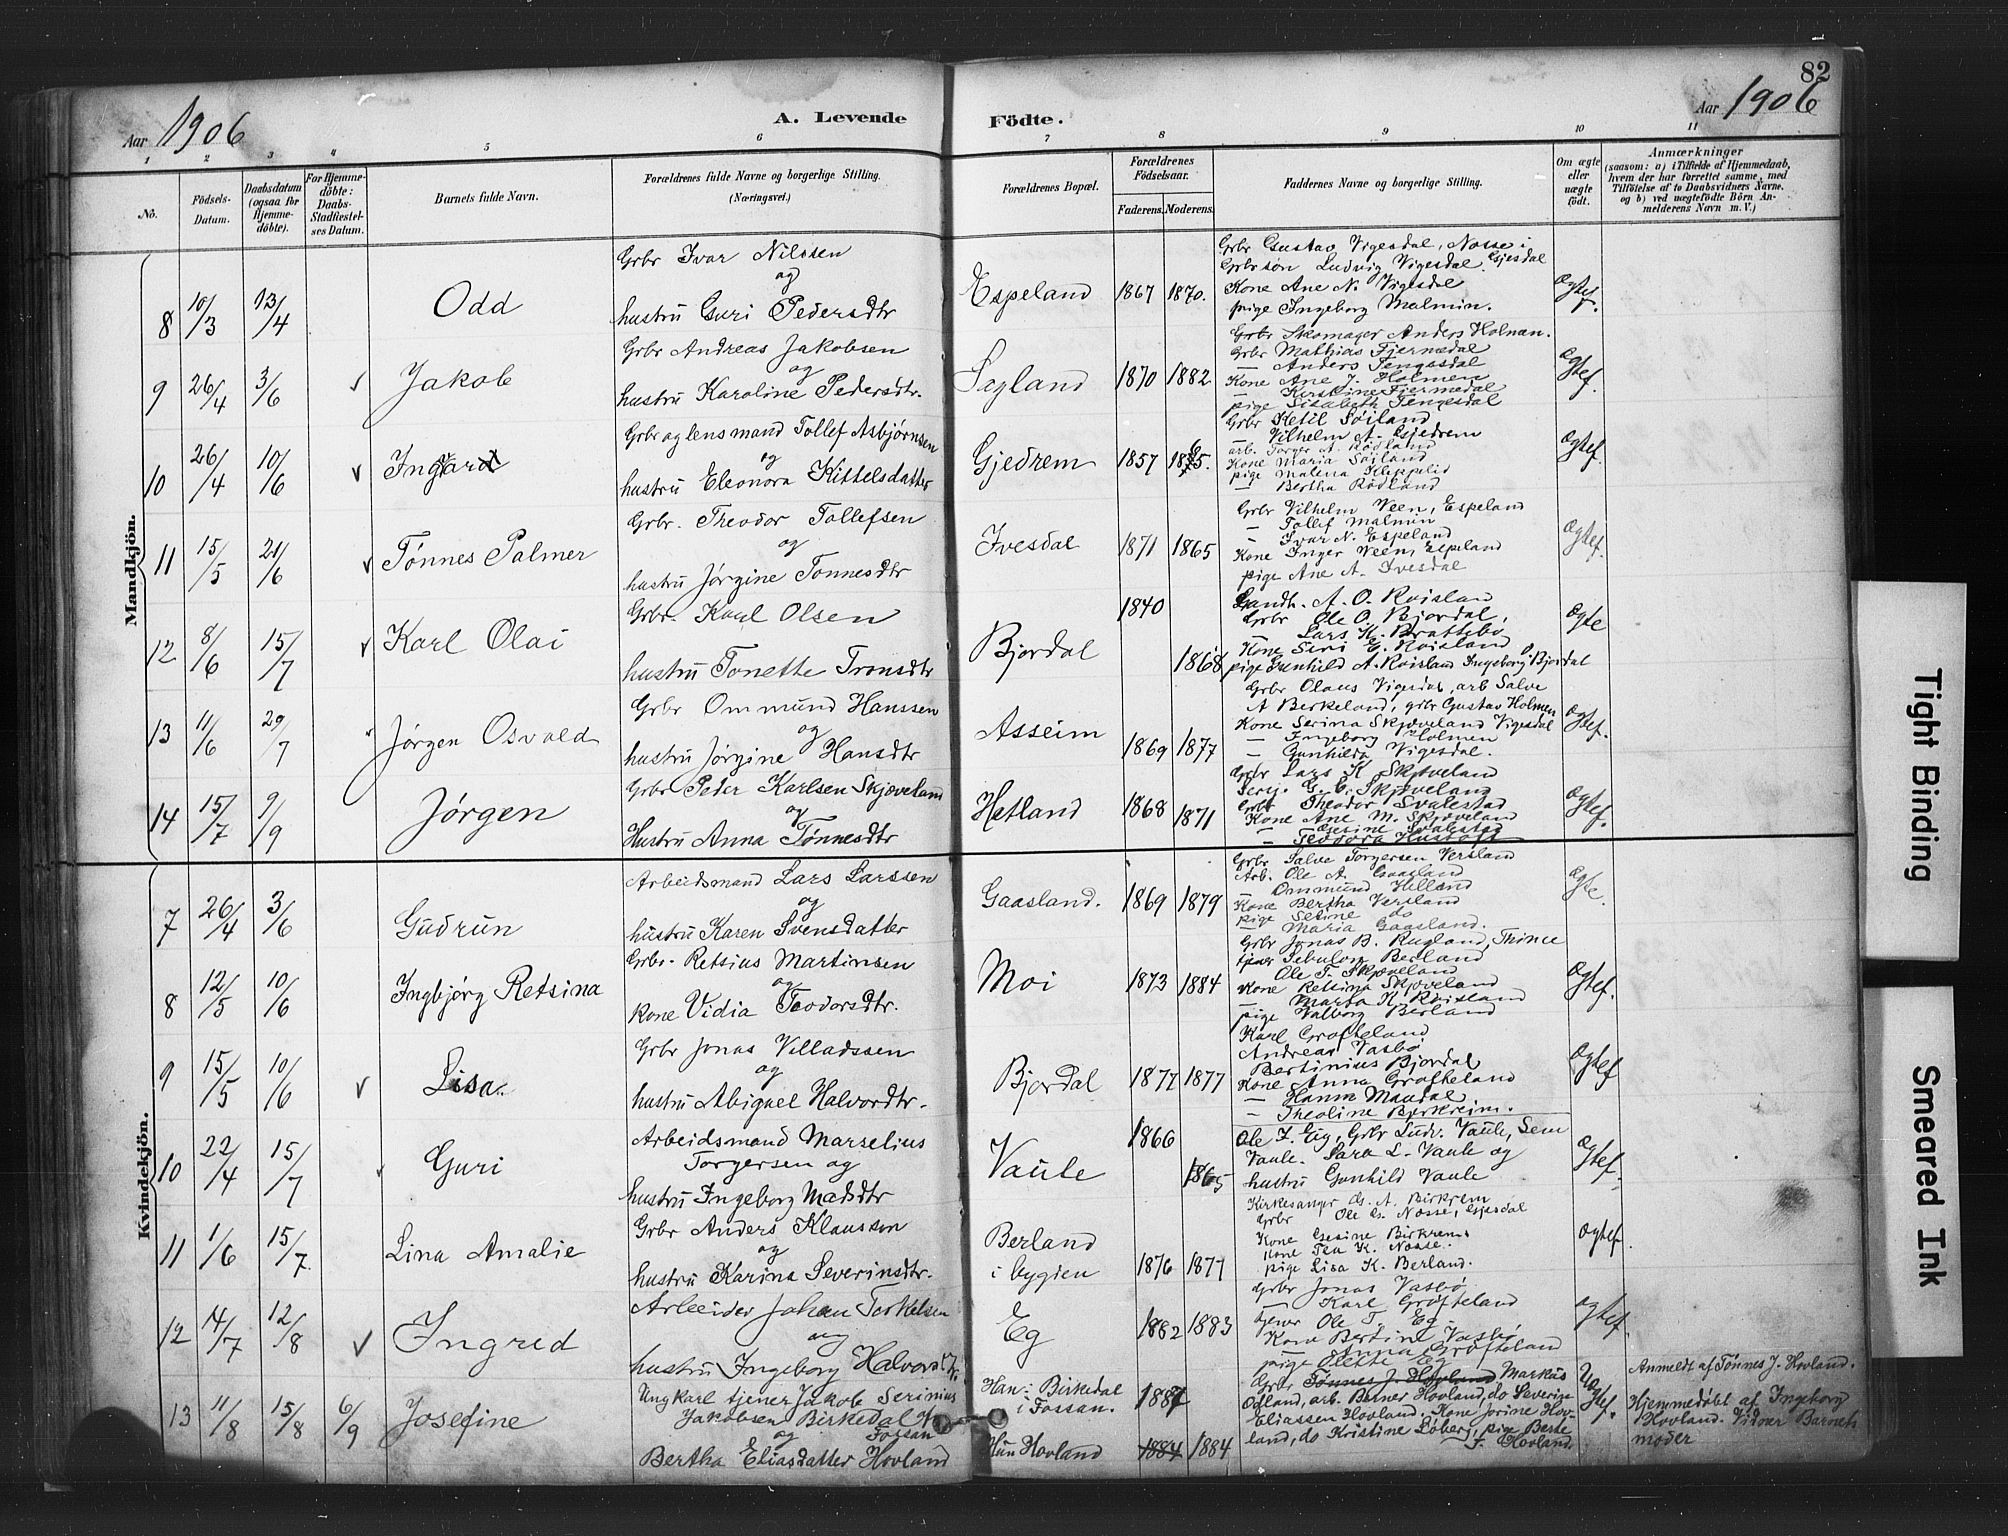 82
Aar 1906
A. Levende
Födte.
Aar 1906
1 2 3 4 5 6 7 8 9 10 11
No.
Födsels-Datum.
Daabsdatum (ogsaa for Hjemme-döbte).
For Hjemme-döbte: Daabs-Stadfæstel-ses Datum.
Barnets fulde Navn.
Forældrenes fulde Navne og borgerlige Stilling. (Næringsvei.)
Forældrenes Bopæl.
Forældrenes Födselsaar.
Faderens. Moderens.
Faddernes Navne og borgerlige Stilling.
Om ægte eller uægte født.
Anmærkninger
(saasom: a) i Tilfælde af Hjemmedaab, hvem der har forrettet samme, med Tilföielse af to Daabsvidners Navne. og b) ved uægtefödte Börn Anmelderens Navn m. V.)
Mandkjön.
8 10/3 13/4 Odd
Grbr Ivar Nilssen
og
hustru Guri Pedersdtr
Espeland 1867 1870.
Grbr Gustav Vigesdal, Nosse i
Grbrsøn Ludvig Vigesdal. Gjesdal
Kone Ane N. Vigesdal
pige Ingeborg Malmin.
Ægtef.
9 26/4 3/6 v Jakob
Grbr Andreas Jakobsen
og
hustru Karoline Pedersdtr.
Sagland 1870 1882
Grbr Skomager Anders Holman.
Grbr Mathias Fjermedal
— Anders Tengesdal
Kone Ane J. Holmen
— Kirstine Fjermedal
pige Elisabeth Tengesdal
Ægtef.
10 26/4 10/6 v
Grbr og lensmand Tollef Asbjørnsen
og
hustru Eleonora Kittelsdatter
Gjedrem 1857
Grbr Ketil Søiland
— Vilhelm A. Gjedrem
arb. Torger A. Rødland
Kone Maria Søiland
pige Malena Kleppelid
— Bertha Rødland
Ægtef.
11 15/5 21/6 v Tønnes Palmer
Grbr. Theodor Tollefsen
og
hustru Jørgine Tonnesdtr
Ivesdal 1871 1865
Grbr Vilhelm Veen, Espeland
— Tollef Malmin
— Ivar N. Espeland
Kone Inger Veen, Espeland
pige Ane A. Ivesdal
Ægtef.
12 8/6 15/7 v Karl Olai
Grbr. Karl Olsen
hustru Tonette Tronsdtr
Bjordal 1840 1868
Landh. A. O. Røisland
Grbr Ole O. Bjordal,
— Lars K. Brattebø
Kone Siri E. Røisland
pige Gunhild A. Røisland Ingeborg O. Bjordal
Ægte
13 11/6 29/7 Jørgen Osvald
Grbr Ommund Hanssen
og
hustru Jørgine Hansdtr
Asseim 1869 1877
Grbr Olaus Vigesdal, arb Salve
A Berkeland, grbr Gustav Holmen
Kone Serina Skjæveland Vigesdal
— Ingeborg Holmen
— Gunhilda Vigesdal.
Ægtef.
14 15/7 9/9 Jørgen
Grbr Peder Karlsen Skjæveland
og
Hustru Anna Tønnesdtr
Hetland 1868 1871
Grbr Lars K Skjæveland
Sersj. G. E. Skjæveland
Grbr Theodor Svalestad
Kone Ane M. Skjæveland
— Gesine Svalestad
— Teodora
Ægtef.
Kvindekjön.
7 26/4 3/6 Gudrun
Arbeidsmand Lars Larssen
og
hustru Karen Svensdatter
Gaasland. 1869 1879
Grbr Salve Torgersen Versland
Arb. Ole A. Gaasland
— Ommund Helland
Kone Bertha Versland
pige Serine do
— Maria Gaasland.
Ægte.
8 12/5 10/6 Ingbjørg Retsina
Grbr. Retsius Martinsen
og
Kone Vidia Teodorsdtr.
Moi 1873 1884
Grbr Jonas B. Rugland, Thime
tjener Sebulon Berland
Ole T. Skjæveland
Kone Retsina Skjæveland
— Marta K. Røisland
pige Valborg Berland
Ægtef.
9 15/5 10/6 v Lisa.
Grbr Jonas Villadssen
og
hustru Abiguel Halvordtr.
Bjordal 1877 1877
Karl Grøfteland
Andreas Vasbø
Bertinius Bjordal
Kone Anna Grøfteland
— Hanna Maudal
— Theoline Birkreim.
Ægtef
10 22/4 15/7 Guri
Arbeidsmand Marselius
Torgersen og
hustru Ingeborg Madsdtr
Vaule 1866 1865
Ole I. Eig, Grbr Ludv. Vaule, Sem
Vaule. Sara L. Vaule og
hustru Gunhild Vaule
Ægtef.
11 1/6 15/7 Lina Amalie
Grbr Anders Klaussen
og
hustru Karina Severinsdtr.
Berland
i bygden 1876 1877
Kirkesanger G. A. Birkrem
Grbr Ole G. Nosse, Gjesdal
Kone Gesine Birkrem.
Kone Tea K. Nosse.
pige Lisa K. Berland.
Ægtef.
12 14/7 12/8 v Ingrid
Arbeider Johan Torkelsen
og
hustru Ingeborg Halvorsdtr
Eg 1882 1883
Grbr Jonas Vasbø
— Karl Grøfteland
tjener Ole T. Eg
Kone Bertine Vasbø
— Anna Grøfteland
pige Olette Eg
Ægtef.
13 11/8 15/8 6/9 Josefine
Ungkarl tjener Jakob Serinius
Jakobsen Birkedal
og Fossan
Bertha Eliasdatter Hovland
Han: Birkedal
i Fossan. 1887
Hun Hovland 1884 1884
Grbr Tønnes J. Hovland Markus
Ødland, arb. Berner Hovland, do Severin
Eliassen Hovland. Kone Jorine Hov-
land, do Kristine Løberg, pige Berte
J. Hovland.
Uægtef.
Anmeldt af Tønnes J. Hovland.
Hjemmedøbt af Ingeborg
Hovland. Vidner Barnets
moder
Tight Binding
Smeared Ink